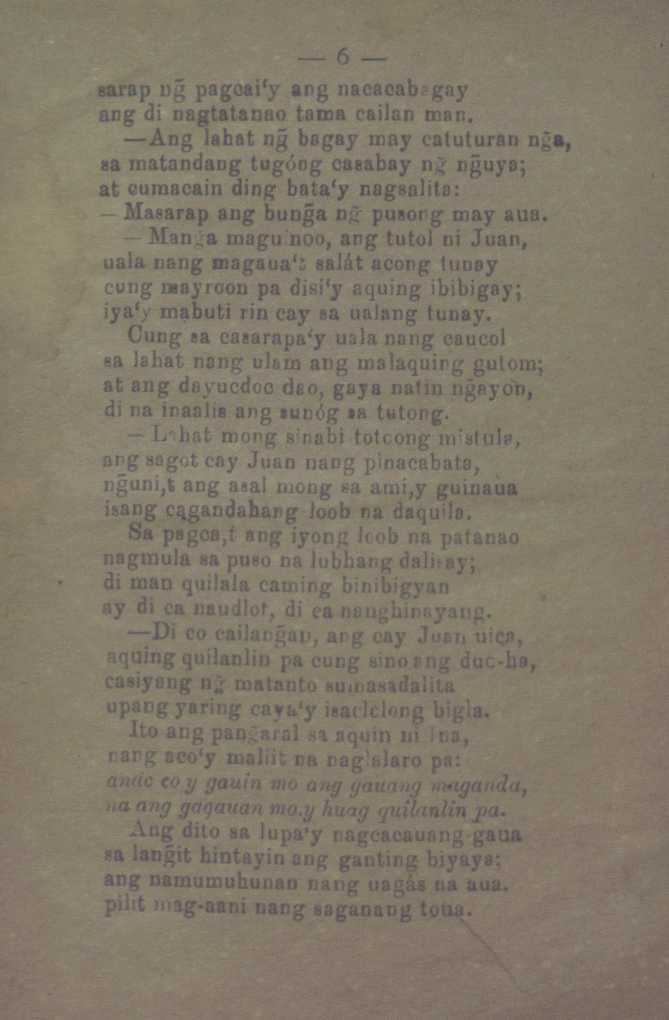 — 6 —
sarap ng̃ pagcai'y ang nacacabagay
ang di nagtatanao tama cailan man.
—Ang lahat ng̃ bagay may catuturan ng̃a,
sa matandang tugóng casabay ng̃ ng̃uya;
at cumacain ding bata'y nagsalita:
— Masarap ang bung̃a ng̃ pusong may aua.
— Mang̃a maguinoo, ang tutol ni Juan,
uala nang magaua't salát acong tunay
cung mayroon pa disi'y aquing ibibigay;
iya'y mabuti rin cay sa ualang tunay.
Cung sa casarapa'y uala nang caucol
sa lahat nang ulam ang malaquing gutom;
at ang dayucdoc dao, gaya natin ng̃ayon,
di na inaalis ang sunóg sa tutong.
— Lahat mong sinabi totoong mistula,
ang sagot cay Juan nang pinacabata,
ng̃uni,t ang asal mong sa ami,y guinaua
isang cagandahang loob na daquila.
Sa pagca,t ang iyong loob na patanao
nagmula sa puso na lubhang dalisay;
di man quilala caming binibigyan
ay di ca naudlot, di ca nanghinayang.
—Di co cailang̃an, ang cay Juan uica,
aquing quilanlin pa cung sino ang duc-ha,
casiyang ng̃ matanto sumasadalita
upang yaring caya'y isaclolong bigla.
Ito ang pang̃aral sa aquin ni Ina,
nang aco'y maliit na naglalaro pa:
anác co y gauin mo ang gauang maganda,
na ang gagauan mo.y huag quilanlin pa.
Ang dito sa lupa'y nagcacauang-gaua
sa lang̃it hintayin ang ganting biyaya;
ang namumuhunan nang uagás na aua.
pilit mag-aani nang saganang toua.